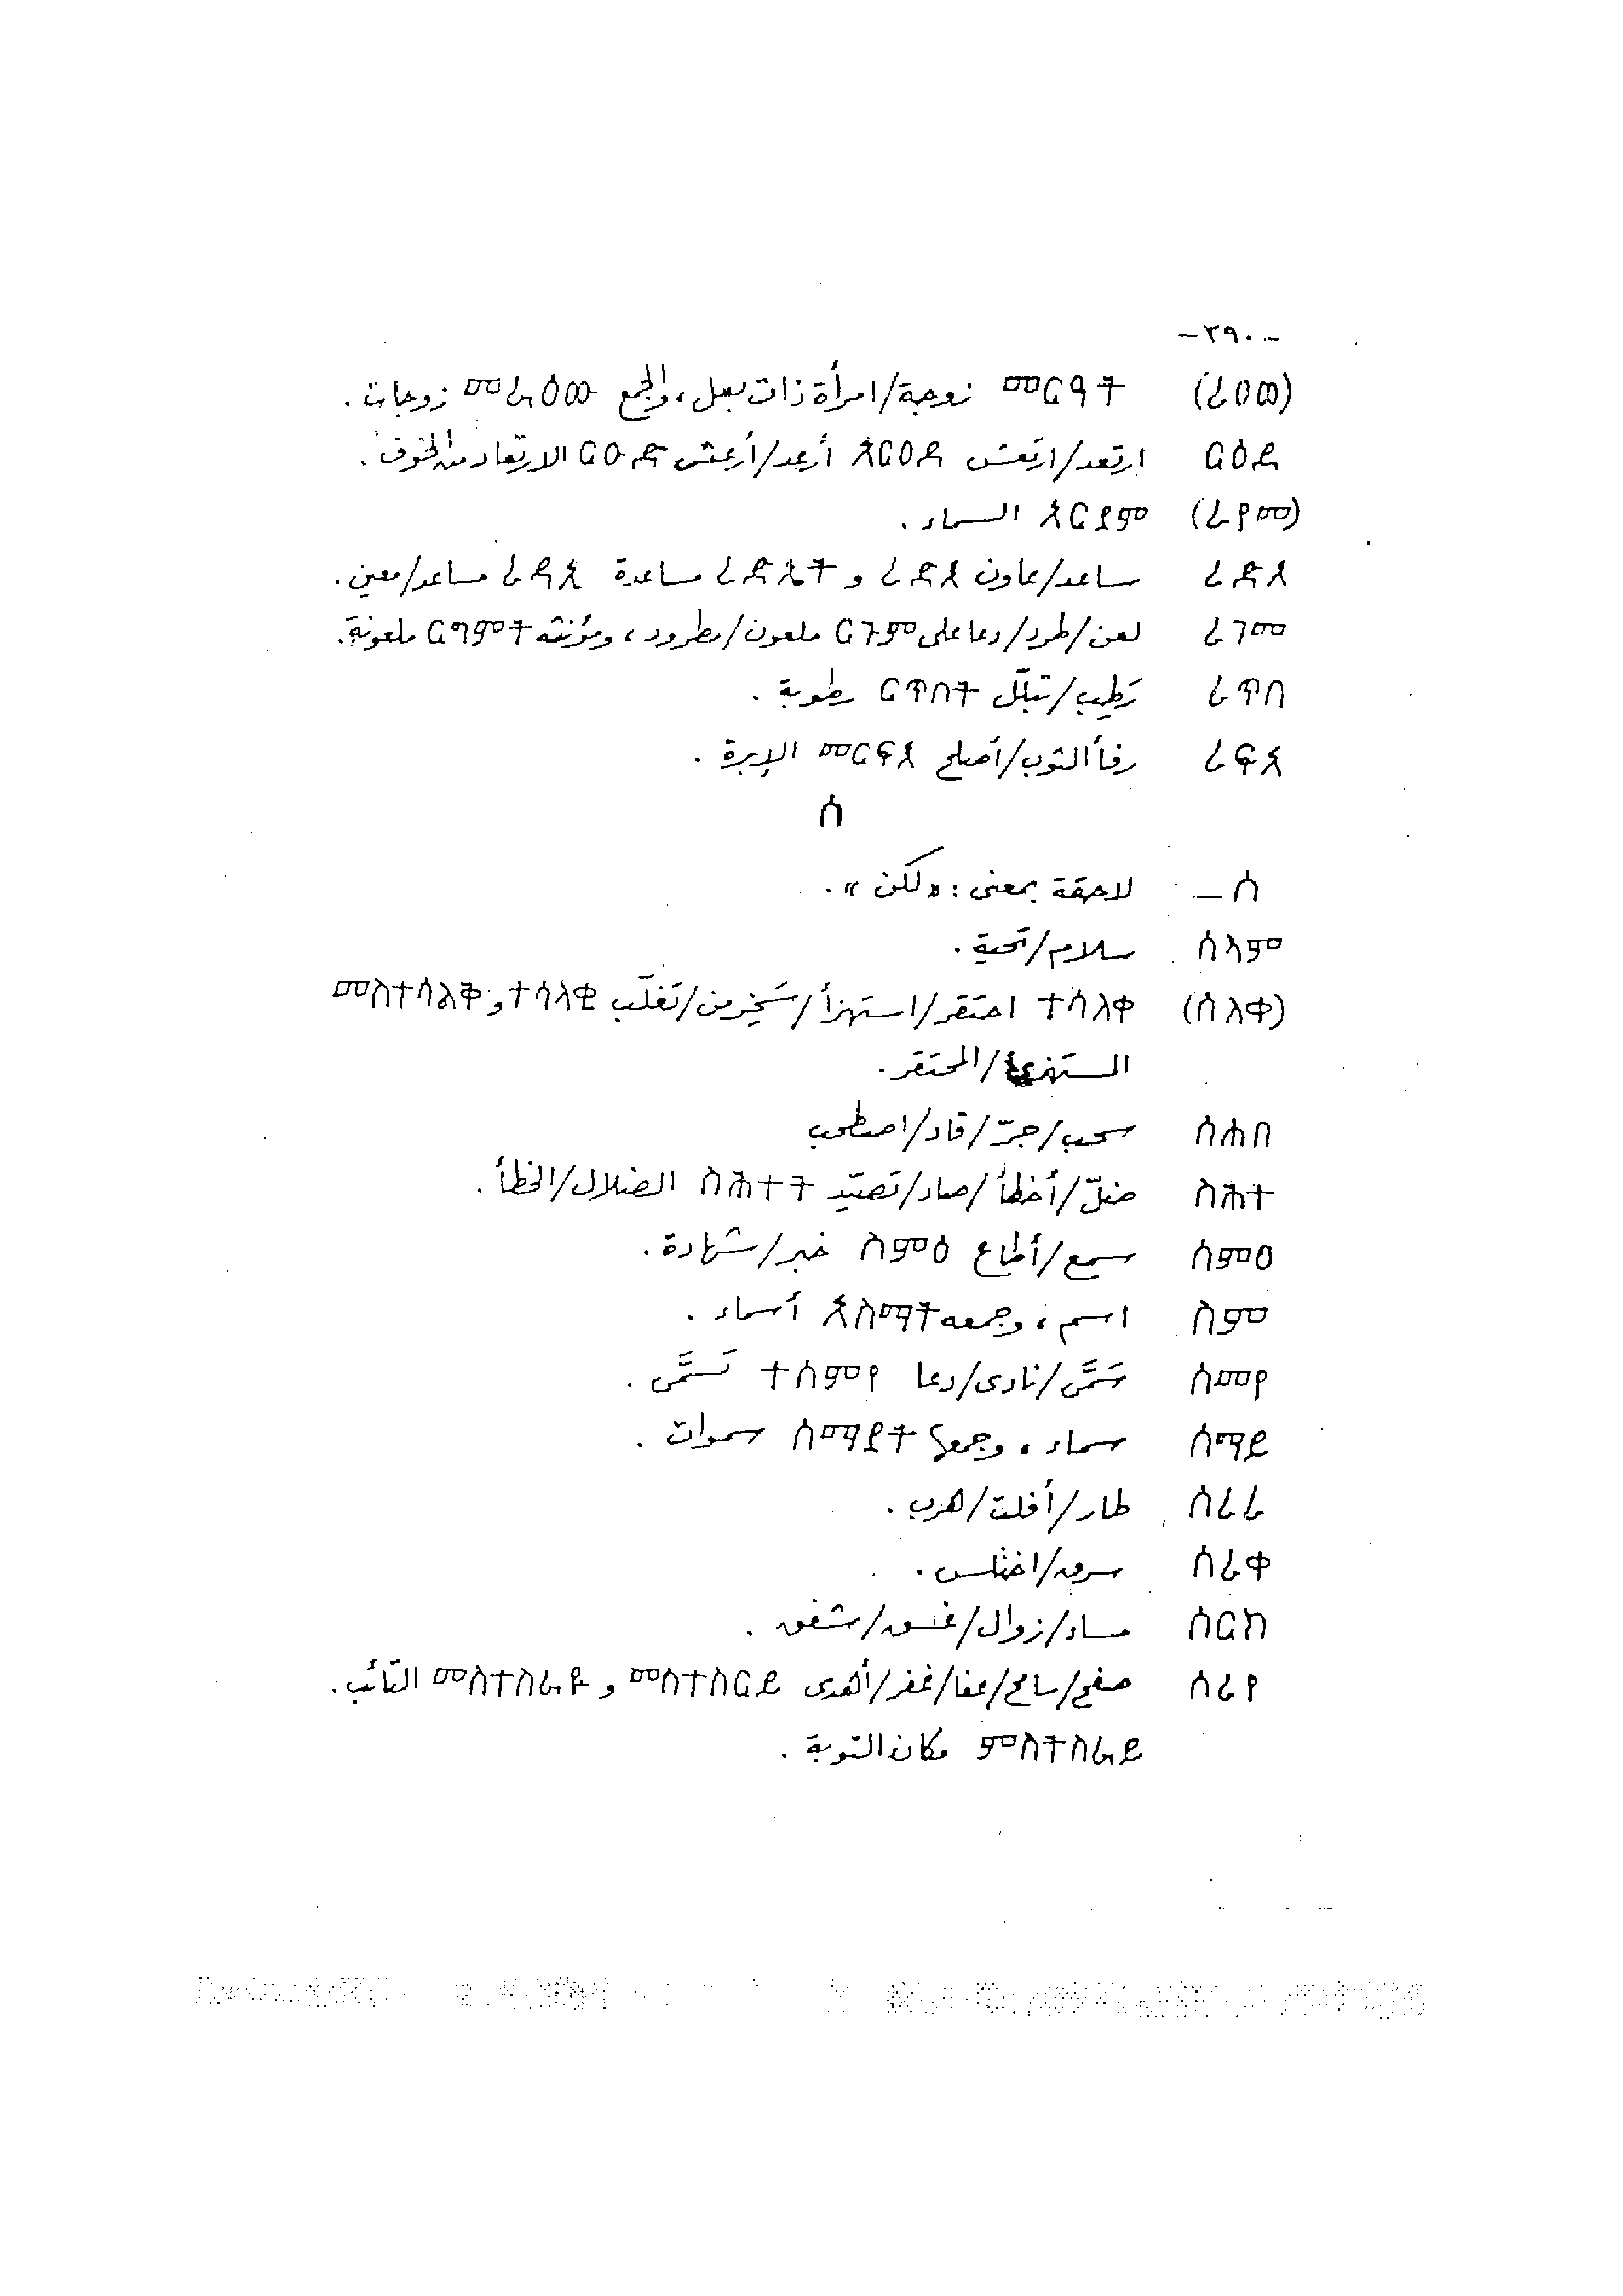 -٣٩٠-
(ረዐወ) መርዓት زوجة/امرأة ذات بعل، والجمع መራዐው زوجات.
ርዕደ ارتعد/ارتعش አርዐደ أرعد/أرعش ርዑድ الارتعاد من الخوف.
(ረየመ) አርያም السماء.
ረድአ ساعد/عاون ረድአ و ረድኤት مساعدة ረዳኢ مساعد/معين.
ረገመ لعن/طرد/دعا على ርጉም ملعون/مطرود، ومؤنثه ርግምት ملعونة.
ረጥበ رَطِب/تبلّل ርጥበት رطوبة.
ረፍአ رفأ الثوب/أصلح መርፍእ الإبرة.
ሰ
–ሰ لاحقة بمعنى: «لكن».
ሰላም سلام/تحية.
(ሰለቀ) ተሳለቀ احتقر/استهزأ/سَخِر من/تَغلّب ተሳለቂ و መስተሳልቅ
المستهزئ/المحتقر.
ሰሐበ سحب/جرّ/قاد/اصطحب
ስሕተ ضلّ/أخطأ/صاد/تصيّد ስሕተት الضلال/الخطأ.
ሰምዐ سمع/أطاع ስምዕ خبر/شهادة.
ስም اسم، وجمعه አስማት أسماء.
ሰመየ سَمَّى/نادى/دعا ተሰምየ تَسَمَّى.
ሰማይ سماء، وجمعها ሰማያት سموات.
ሰረረ طار/أفلت/هرب.
ሰረቀ سرق/اختلس.
ሰርክ مساء/زوال/غسق/شفق.
ሰረየ صفح/سامح/عفا/غفر/أهدى መስተስርይ و መስተስራዪ التائب.
ምስትስራይ مكان التوبة.